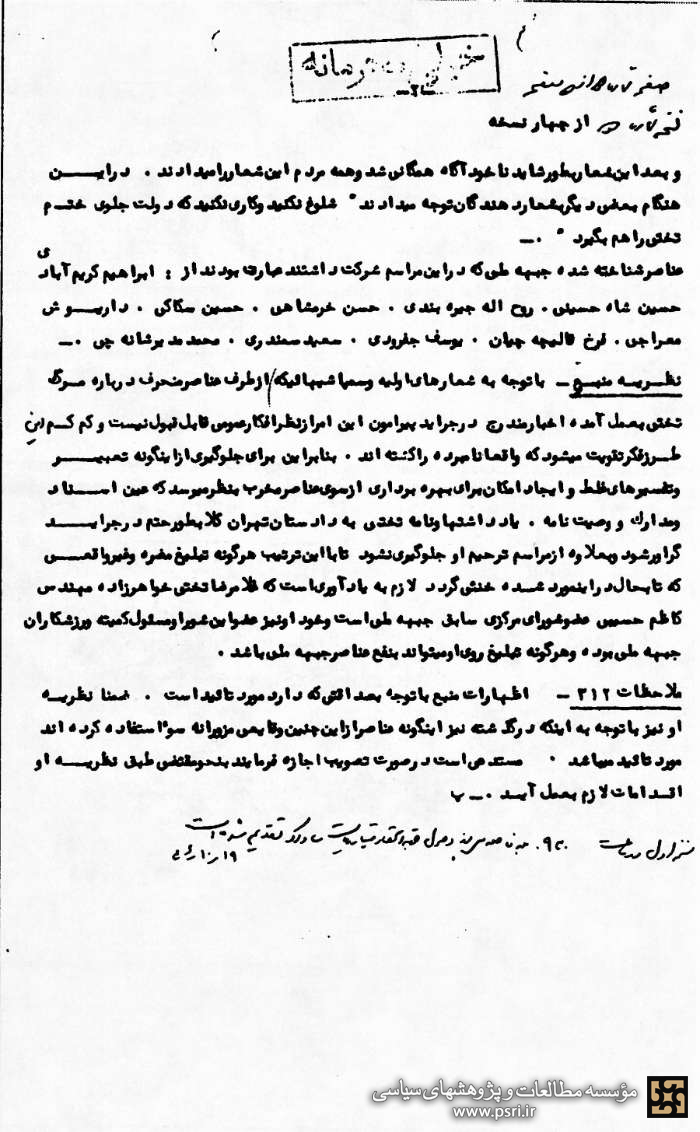 خیلی محرمانه
از چهار نسخه
و بعد این شعار بطور شاید ناخودآگاه همگانی شد و همه مردم این شعار را میدادند . در این
هنگام بعضی دیگر بشعار دهندگان توجه میدادند " شلوغ نکنید و کاری نکنید که دولت جلوی ختم
تختی را هم بگیرد " .ـ
عناصر شناخته شده جبهه ملی که در این مراسم شرکت داشتند عبارت بودند از : ابراهیم کریم آبادی
حسین شاه حسینی . روح اله جیره بندی . حسن خرمشاهی . حسین سکاکی . داریوش
معراجی . فرخ قالیچه چیان . یوسف جلرودی . سعید صفدری . محمد مدیر شانه چی .ـ
نظریه منبع ـ با توجه به شعارهای اولیه و سمپاشیهائیکه از طرف عناصر منحرف درباره مرگ
تختی بعمل آمده اخبار مندرج در جراید پیرامون این امر از نظر افکار عمومی قابل قبول نیست و کم کم این
طرز فکر تقویت میشود که واقعا نامبرده را کشته اند . بنابراین برای جلوگیری از اینگونه تعبیر
و تفسیرهای غلط و ایجاد امکان برای بهره برداری از سوی عناصر مخرب بنظر میرسد که عین اسناد
و مدارک و وصیت نامه . یادداشتها و نامه تختی به دادستان تهران کلا بطور حتم در جراید
گراور شود و بعلاوه از مراسم ترحیم او جلوگیری نشود تا با این ترتیب هرگونه تبلیغ مضره و غیر واقعی
که تا بحال در اینمورد شده خنثی گردد لازم به یادآوری است که غلامرضا تختی خواهرزاده مهندس
کاظم حسیبی عضو شورای مرکزی سابق جبهه ملی است و خود او نیز عضو این شورا و مسئول کمیته ورزشکاران
جبهه ملی بوده و هرگونه تبلیغ روی او میتواند بنفع عناصر جبهه ملی باشد .
ملاحظات ۳۱۲ ـ اظهارات منبع با توجه بصداقتی که دارد مورد تائید است . ضمنا نظریه
او نیز با توجه به اینکه در گذشته نیز اینگونه عناصر از این چنین وقایعی مزورانه سوء استفاده کرده اند
مورد تائید میباشد . مستدعی است در صورت تصویب اجازه فرمایند بنحو مقتضی طبق نظریه او
اقدامات لازم بعمل آید .ـ ب
مؤسسه مطالعات و پژوهشهای سیاسی
www.psri.ir